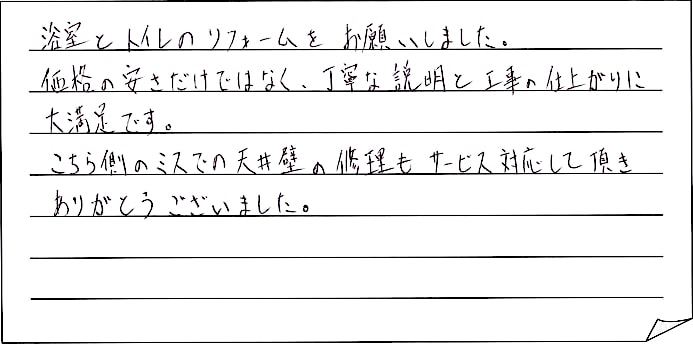 浴室とトイレのリフォームをお願いしました。
価格の安さだけではなく、丁寧な説明と工事の仕上がりに
大満足です。
こちら側のミスでの天井壁の修理もサービス対応して頂き
ありがとうございました。